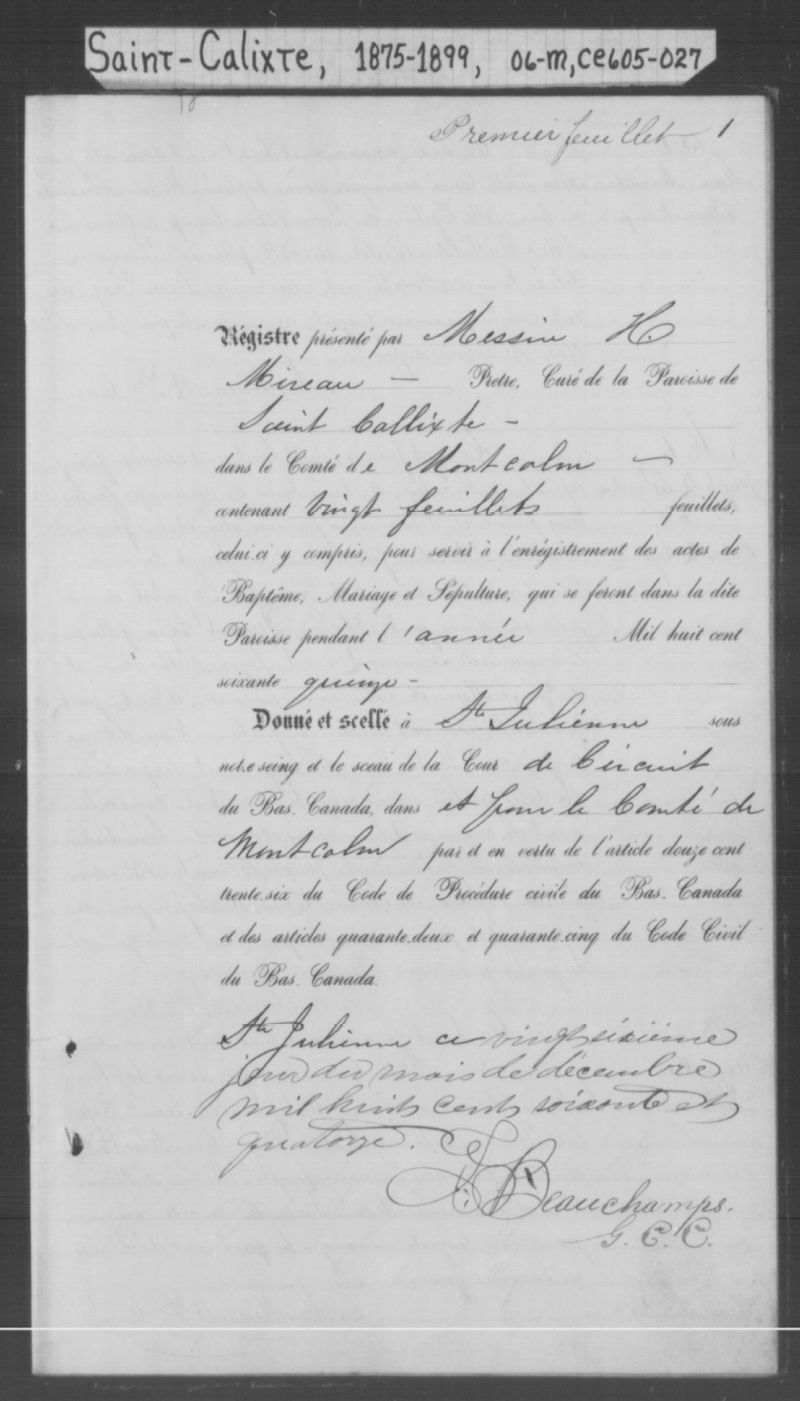 Saint-Calixte, 1875-1899, 06-M, CE605-027
Premier feuillet 1
Régistre présenté par Messire H
Mireau — Pretre, Curé de la Paroisse de
Saint Callixte -
dans le Comté de Montcalm —
contenant vingt feuillets feuillets,
celui.ci y compris, pour servir à l'enrégistrement des actes de
Baptême, Mariage et Sépulture, qui se feront dans la dite
Paroisse pendant l'année Mil huit cent
soixante quinze -
Donné et scellé à Ste Julienne sous
notre seing et le sceau de la Cour de Circuit
du Bas-Canada, dans et pour le Comté de
Montcalm par et en vertu de l'article douze cent
trente.six du Code de Procédure civile du Bas-Canada
et des articles quarante.deux et quarante.cinq du Code Civil
du Bas-Canada.
Ste Julienne ce vingt sixième
jour du mois de décembre
mil huit cent soixante et
quatorze.
Beauchamps.
G. C. C.